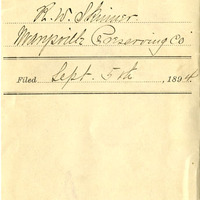 R. W. Skinner
Marysville Preserving Co
Filed Sept. 5th, 1894